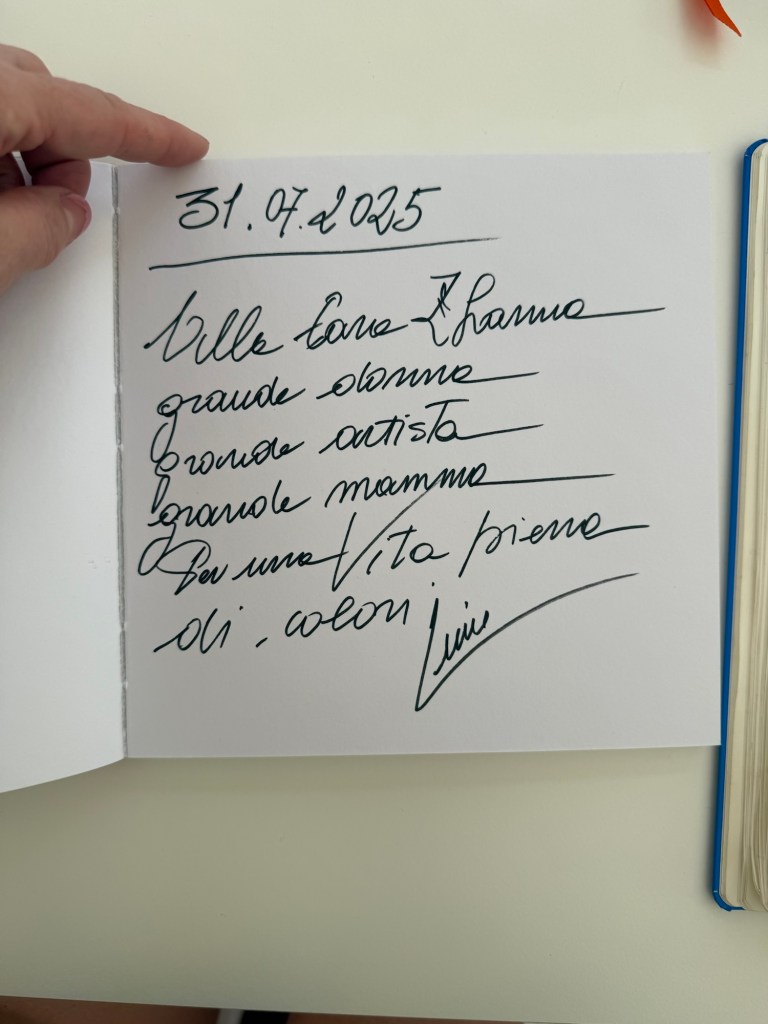 31.07.2025
Alla cara Zhanna
grande donna
grande artista
grande mamma
Per una Vita piena
di colori